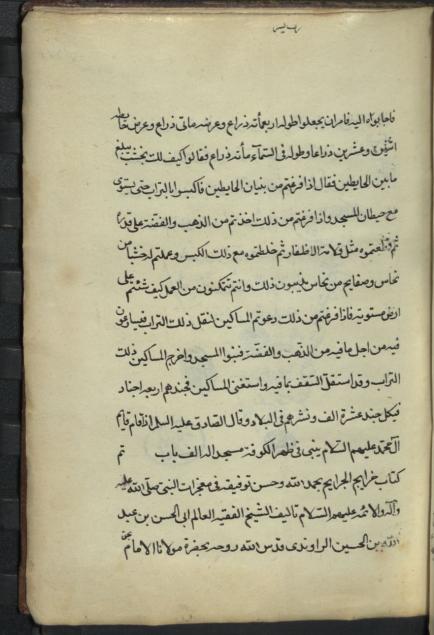 فاجابوه اليه فامران يجعلوا طوله اربعمأته ذراع وعرضه مأتى ذراع وعرض حايطه
اثنين وعشرين ذراعا وطوله فى السمآء مأته ذراع فقالوا كيف لك بخشب يبلغ
مابين الحايطين فقال اذا فرغتم من بنيان الحايطين فاكبسوا بالتراب حتى يستوى
مع حيطان المسجد واذا فرغتم من ذلك اخذتم من الذهب والفضة على قدره
ثم قطعتموه مثل قلامة الاظفار ثم خلطتموه مع ذلك الكبس وعملتم له خشبا من
نحاس وصفايح من نحاس تذيبون ذلك وانتم تتمكنون من العمل كيف شئتم على
ارض مستوية فاذا فرغتم من ذلك دعوتم المساكين لنقل ذلك التراب فيسارعون
فيه من اجل ما فيه من الذهب والفضة فبنوا المسجد واخرج المساكين ذلك
التراب وقد استقل السقف بما فيه واستغنى المساكين فجندهم اربعه اجناد
فى كل جند عشرة الف ونشرهم فى البلاد وقال الصادق عليه السلم اذا قام قايم
آل محمد عليهم السّلام يبنى فى ظهر الكوفة مسجد اله الف باب تم
كتاب خرايج الجرايح بحمد الله وحسن توفيقه فى معجزات النبى صلّى الله عليه
وآله والائمه عليهم السّلام تاليف الشيخ الفقيه العالم ابى الحسن بن عبد
الله بن الحسين الراوندى قدس الله روحه بحضرة مولانا الامام